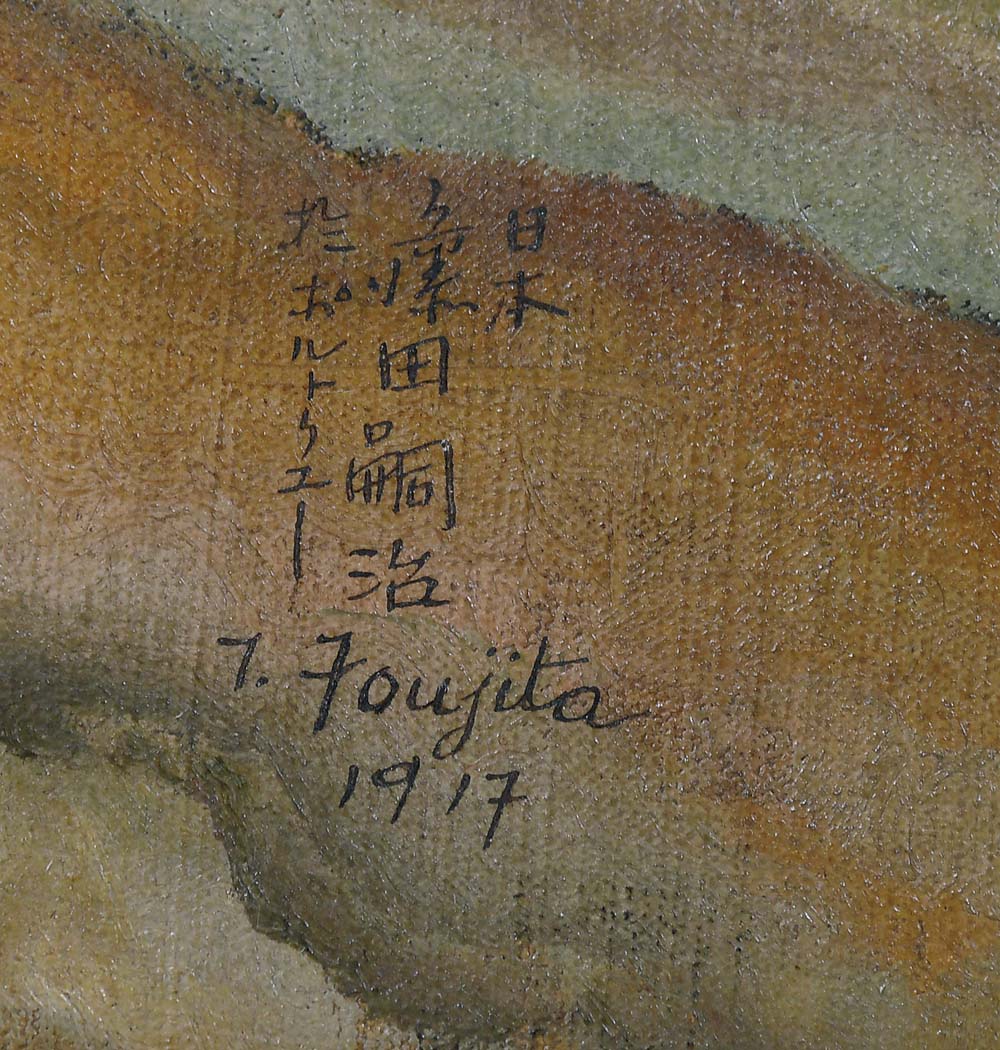 日本
藤田嗣治
於ポルトクエー
T. Foujita
1917